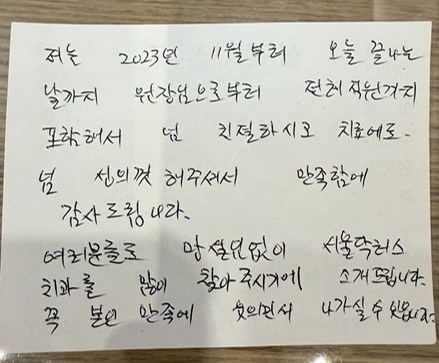 저는 2023년 11월부터 오늘 끝나는
날까지 원장님으로부터 전체 직원까지
포함해서 넘 친절하시고 치료에도.
넘 신의껏 해주셔서 만족함에
감사드립니다.
여러분들도 망설임없이 서울닥터스
치과를 많이 찾아주시기에 소개드립니다.
꼭 본인 만족에 웃으면서 나가실 수 있읍니다.